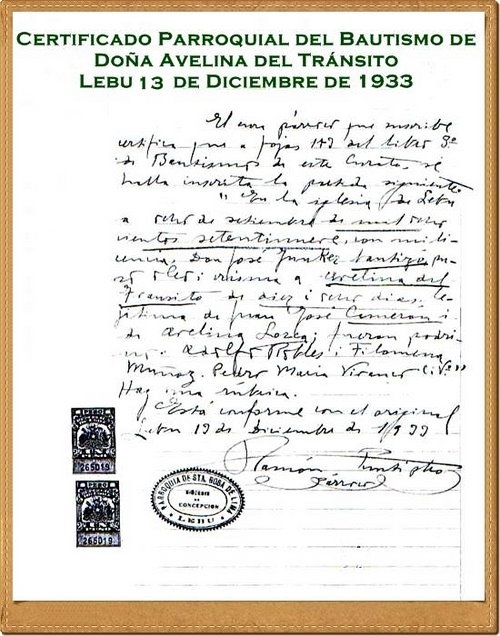 CERTIFICADO PARROQUIAL DEL BAUTISMO DE
DOÑA AVELINA DEL TRÁNSITO
LEBU 13 DE DICIEMBRE DE 1933
El cura párroco que suscribe
certifica que a fojas 142 del libro 9º
de Bautismos de este Curato, se
halla inscrita la partida siguiente
"En la iglesia de Lebu
a ocho de setiembre de mil ocho
cientos setentinueve, con mi li-
cencia, Don José Santiago pu-
so oleo i crisma a Avelina del
Tránsito de diez i ocho dias, le-
jítima de Juan José Cameron i
de Avelina Lozca; fueron padri-
nos: Adolfo Robles i Filomena
Muñoz. Pedro María Vivanco
Hay una rúbrica.
Está conforme con el original
Lebu 13 de Diciembre de 1933
Ramón
Párroco
1 PESO
265019
1 PESO
265019
PARROQUIA DE STA. ROSA DE LIMA
CONCEPCION
LEBU